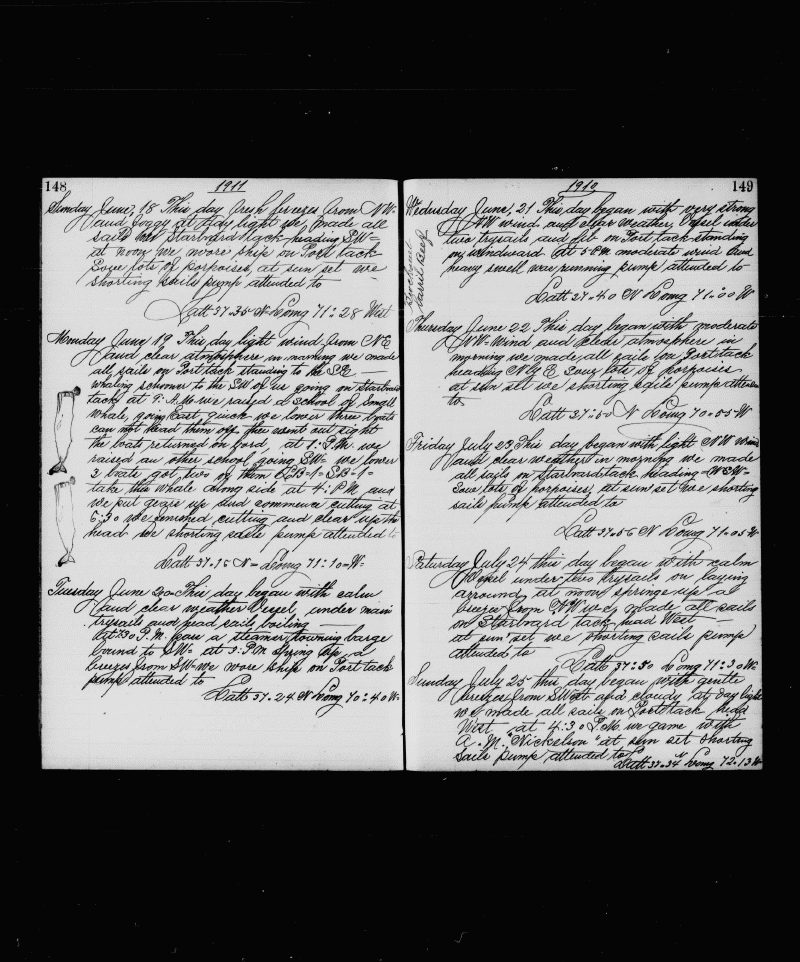 148
1911
Sunday June, 18 This day fresh breezes from NW-
and foggy at day light we made all
sails on Starbord tack heading SW-
at noon we woore ship on Port tack
Souze lots of porpoises, at sun set we
shorting sails pump attended to
Latt 37-35 N- Long 71-28 West
Monday June 19 This day light wind from NE
and clear atmosphere in marning we made
all sails on Port tack standing to the SE —
whaling schooner to the SW of us going on Starbord
tack, at 9: A.M. we raised a school of Small
whale, going East, quick we lower three boats
can not head them off they went out sight
the boats returned on bord, at 1: P.M. we
raised an other school going SW- we lower
3 boats got two of them LB-1- SB-1-
take this whale along side at 4: P.M. and
we put gears up and commence cutting at
6:30 we finished cutting and clear up the
head we shorting sails pump attended to
Latt-37-15 N- Long 71-10-W-
Tuesday June 20 This day began with calm
and clear weather Vessel, under main
trysails and head sails boiling —
at 1:30 P.M. saw a steamer towning barge
bound to SW- at 3-PM Spring up a
breeze from SW- we wore ship on Port tack
pump attended to
Latt 37-24 N Long 70-40 W-
149
1910
Wednesday June, 21 This day began with very strong
NW wind and clear weather, Vessel under
two trysails and jib on Port tack standing
by windward at 5 P.M. moderate wind and
heavy swell was running pump attended to
Latt 37-40 N Long 71-00 W
Barrel Beef
Thursday June 22 This day began with moderate
NW- Wind and clear atmosphere in
morning we made, all sails on Port tack
heading N by E Souz lots of porpoises
at sun set we shorting sails pump attended
to
Latt 37-50 N Long 70-05-W
Friday July 23 This day began with light NW wind
and clear weather in morning we made
all sails on Starbard tack heading - WSW-
Souz lots of porpoises, at sun set we shorting
sails pump attended to
Latt 37-56 N Long 71-05-W
Saturday July 24 this day began with calm
Vessel under two trysails on laying
arround, at noon springe up a
breeze from NW we, made all sails
on Starbard tack, head West —
at sun set we shorting sails pump
attended to
Latt 37-50 Long 71-30 W.
Sunday July 25 this day began with gentle
breeze from SWest and cloudy at day light
we made all sails on Port tack head
West at 4:30 P.M. we game with
A. M. "Nickelson" at sun set shorting
sails pump attended to
Latt 37-34 N Long 72-13 W